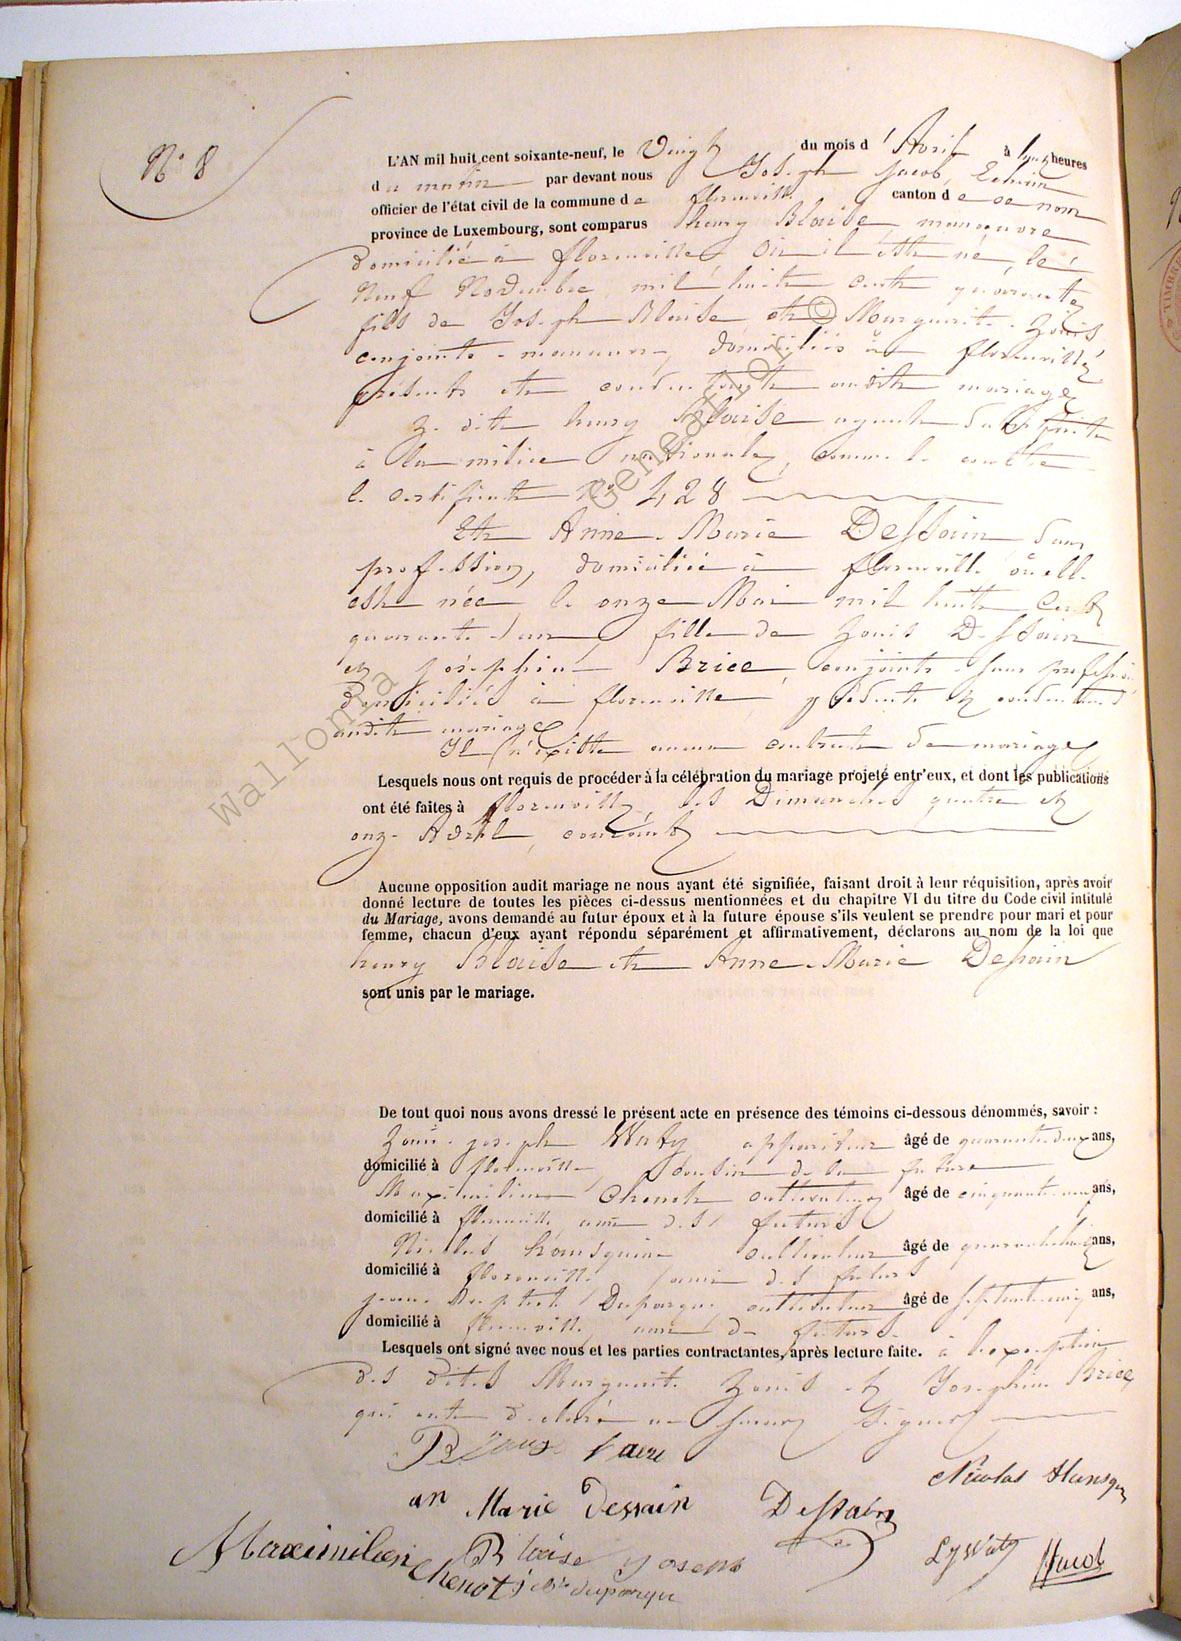 N° 8
L'AN mil huit cent soixante-neuf, le Vingt du mois d' Avril à onze heures
du matin par devant nous Joseph Jacob, Echevin
officier de l'état civil de la commune de florenville canton de ce nom
province de Luxembourg, sont comparus henry Blaise, manœuvre
domicilié à florenville où il est né, le
Neuf Novembre mil huit cent quarante
fils de Joseph Blaise et Marguerite Louis
conjoints manœuvres, domiciliés à florenville
présents et consentants audit mariage
Le dit henry Blaise ayant satisfait
à la milice nationale, comme le constate
le certificat N° 428
Et Anne-Marie Dessain, sans
profession, domiciliée à florenville où elle
est née, le onze Mai mil huit cent
quarante-un, fille de Louis Dessain
et Joséphine Brice, conjoints sans profession
domiciliés à florenville, présents et consentants
audit mariage
Il n'existe aucun contrat de mariage
Lesquels nous ont requis de procéder à la célébration du mariage projeté entr'eux, et dont les publications
ont été faites à florenville, les Dimanches quatre et
onze Avril, courant
Aucune opposition audit mariage ne nous ayant été signifiée, faisant droit à leur réquisition, après avoir
donné lecture de toutes les pièces ci-dessus mentionnées et du chapitre VI du titre du Code civil intitulé
du Mariage, avons demandé au futur époux et à la future épouse s'ils veulent se prendre pour mari et pour
femme, chacun d'eux ayant répondu séparément et affirmativement, déclarons au nom de la loi que
henry Blaise et Anne-Marie Dessain
sont unis par le mariage.
De tout quoi nous avons dressé le présent acte en présence des témoins ci-dessous dénommés, savoir :
Louis-joseph Waty appariteur âgé de quarante-deux ans,
domicilié à florenville, cousin de la future
Maximilien Chenot cultivateur âgé de cinquante-neuf ans,
domicilié à florenville ami des futurs
Nicolas hansquine cultivateur âgé de quarante-huit ans,
domicilié à florenville ami des futurs
jean Baptiste Duparque cultivateur âgé de ans,
domicilié à florenville ami des futurs
Lesquels ont signé avec nous et les parties contractantes, après lecture faite. à l'exception
des dites Marguerite Louis et Joséphine Brice
qui ont déclaré ne savoir signer
Blaise
Nicolas Hansq
an Marie Dessain Dessain
Maximilien Chenot Blaise Joseph LJ Waty Jacob
duparque
Wallonia
© Geneanet.org